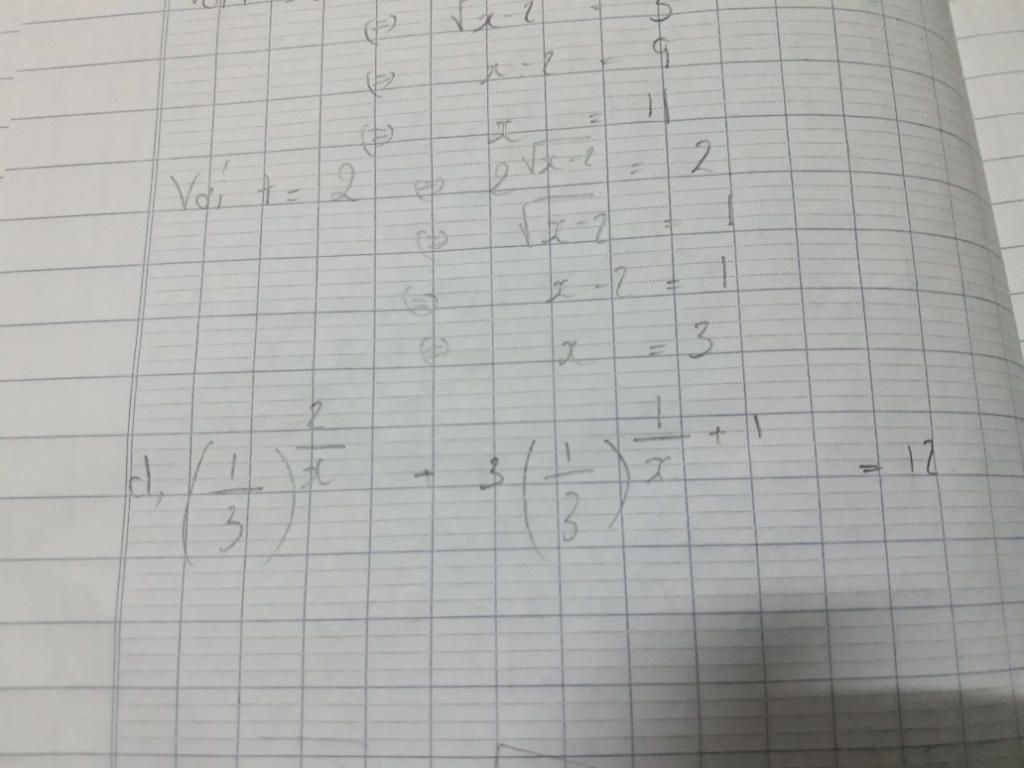 ⇔ √x-2 = 3
⇔ x-2 = 9
⇔ x = 11
Với t = 2 ⇔ 2^√x-2 = 2
⇔ √x-2 = 1
⇔ x-2 = 1
⇔ x = 3
d, (1/3)^(2/x) + 3(1/3)^(1/x + 1) = 12